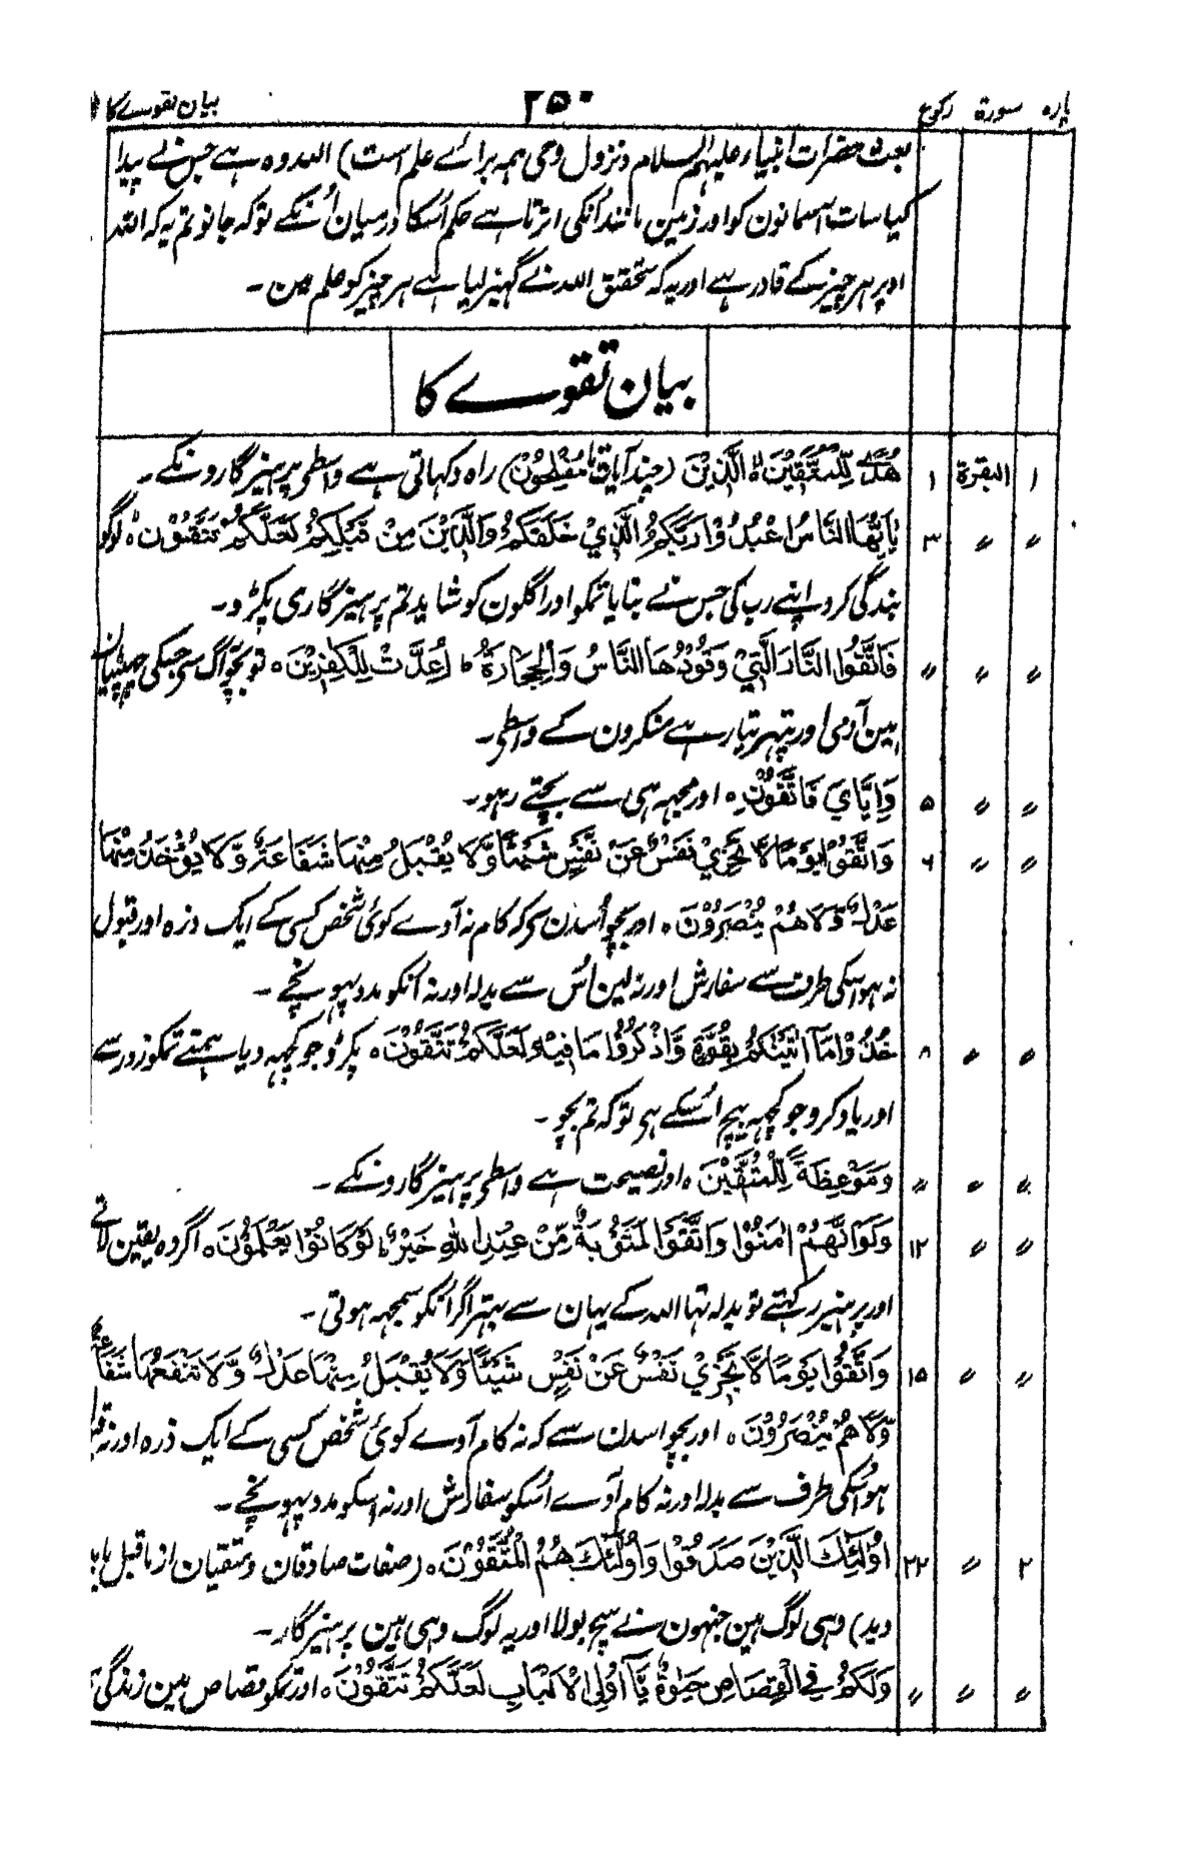 پارہ سورۃ رکوع ۲۵۰ بیان تقوے کا
بعث حضرات انبیاء علیہم السلام و نزول وحی ہمہ برائے علم است) اللہ وہ ہے جس نے پیدا
کیا سات آسمانون کو اور زمین مانند اُنکی اترتا ہے حکم اُسکا درمیان اُنکے توکہ جانو تم یہ کہ اللہ
اوپر ہر چیز کے قادر ہے اور یہ کہ تحقیق اللہ نے گہیر لیا ہے ہر چیز کو علم مین۔
بیان تقوے کا
۱ البقرۃ ۱ ھُدًى لِّلْمُتَّقِيْنَ ہ الَّذِيْنَ (چند آیات تا مُفْلِحُوْنَ) راہ دکہاتی ہے واسطی پرہیزگارونکے۔
〃 〃 ۳ يٰاَيُّهَا النَّاسُ اعْبُدُوْا رَبَّكُمُ الَّذِيْ خَلَقَكُمْ وَالَّذِيْنَ مِنْ قَبْلِكُمْ لَعَلَّكُمْ تَتَّقُوْنَ ہ لوگو
بندگی کرو اپنے رب کی جس نے بنایا تمکو اور اگلون کو شاید تم پرہیزگاری پکڑو۔
〃 〃 〃 فَاتَّقُوا النَّارَ الَّتِيْ وَقُوْدُهَا النَّاسُ وَالْحِجَارَةُ ط اُعِدَّتْ لِلْكٰفِرِيْنَ ہ تو بچو آگ سی جسکی چھپٹیان
ہین آدمی اور پتہر تیار ہے منکرون کے واسطی۔
〃 〃 ۵ وَاِيَّايَ فَاتَّقُوْنِ ہ اور مجہہ ہی سے بچتے رہو۔
〃 〃 ۶ وَاتَّقُوْا يَوْمًا لَّا تَجْزِيْ نَفْسٌ عَنْ نَّفْسٍ شَيْئًا وَّلَا يُقْبَلُ مِنْهَا شَفَاعَةٌ وَّلَا يُؤْخَذُ مِنْهَا
عَدْلٌ وَّلَا هُمْ يُنْصَرُوْنَ ہ اور بچو اُسدن سی کہ کام نہ آوے کوئی شخص کسی کے ایک ذرہ اور قبول
نہ ہو اسکی طرف سے سفارش اور نہ لین اُس سے بدلہ اور نہ اُنکو مدد پہونچے۔
〃 〃 ۸ خُذُوْا مَآ اٰتَيْنٰكُمْ بِقُوَّةٍ وَّاذْكُرُوْا مَا فِيْهِ لَعَلَّكُمْ تَتَّقُوْنَ ہ پکڑو جو کچہہ دیا ہمنے تمکو زور سے
اور یاد کرو جو کچہہ بیچ اُسکے ہی توکہ تم بچو۔
〃 〃 〃 وَمَوْعِظَةً لِّلْمُتَّقِيْنَ ہ اور نصیحت ہے واسطی پرہیزگارونکے۔
〃 〃 ۱۲ وَلَوْ اَنَّهُمْ اٰمَنُوْا وَاتَّقَوْا لَمَثُوْبَةٌ مِّنْ عِنْدِ اللّٰهِ خَيْرٌ ط لَوْ كَانُوْا يَعْلَمُوْنَ ہ اگر وہ یقین لاتے
اور پرہیز رکہتے تو بدلہ تہا اللہ کے یہان سے بہتر اگر اُنکو سمجہہ ہوتی۔
〃 〃 ۱۵ وَاتَّقُوْا يَوْمًا لَّا تَجْزِيْ نَفْسٌ عَنْ نَّفْسٍ شَيْئًا وَّلَا يُقْبَلُ مِنْهَا عَدْلٌ وَّلَا تَنْفَعُهَا شَفَاعَةٌ
وَّلَا هُمْ يُنْصَرُوْنَ ہ اور بچو اسدن سے کہ نہ کام آوے کوئی شخص کسی کے ایک ذرہ اور نہ
ہو اُسکی طرف سے بدلہ اور نہ کام آوے اُسکو سفارش اور نہ اسکو مدد پہونچے۔
۲ 〃 ۲۲ اُولٰٓئِكَ الَّذِيْنَ صَدَقُوْا وَاُولٰٓئِكَ هُمُ الْمُتَّقُوْنَ ہ (صفات صادقان و متقیان از ما قبل باید
دید) وہی لوگ ہین جنہون نے سچ بولا اور یہ لوگ وہی ہین پرہیزگار۔
〃 〃 〃 وَلَكُمْ فِي الْقِصَاصِ حَيٰوةٌ يَّآ اُولِي الْاَلْبَابِ لَعَلَّكُمْ تَتَّقُوْنَ ہ اور تمکو قصاص مین زندگی